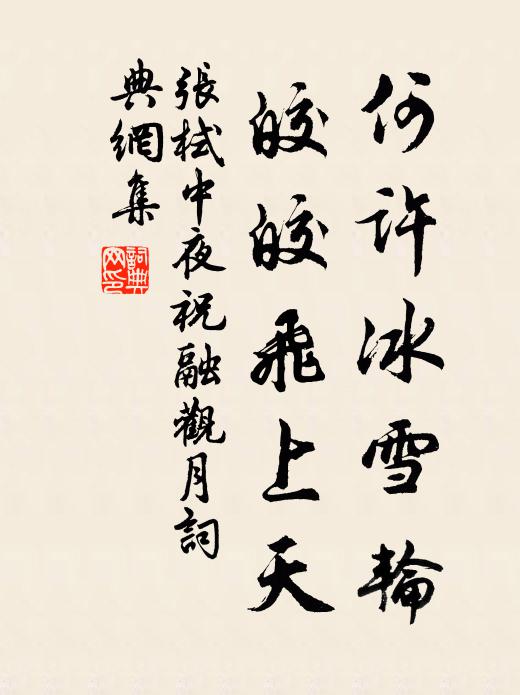 何許冰雪輪
皎皎飛上天
張栻中夜祝融觀月詞
典網集
詞典网印